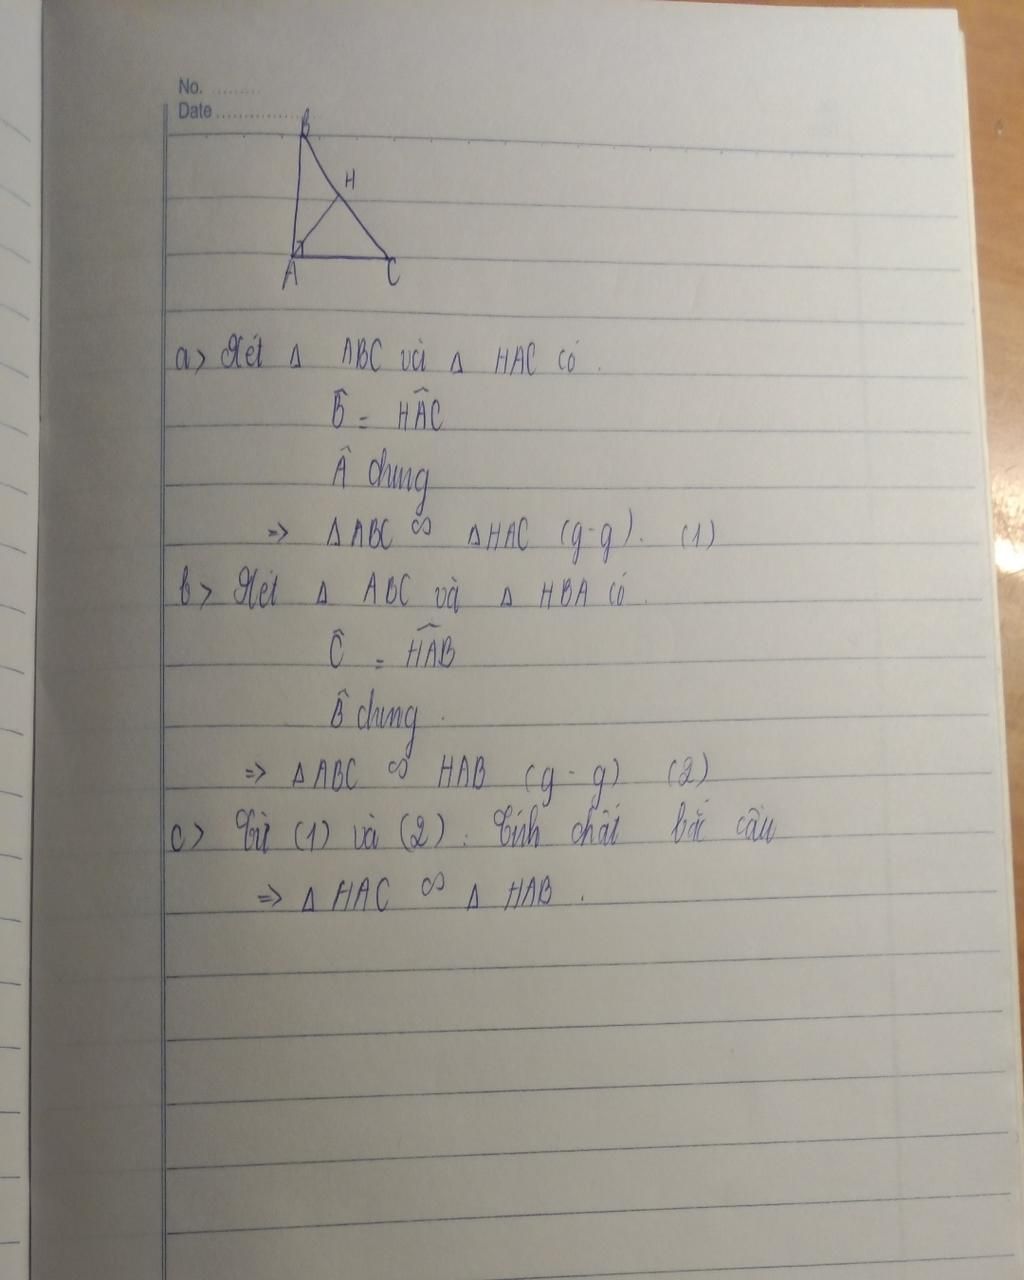 No. .........
Date ...................
B
H
A
C
a> Xét Δ ABC và Δ HAC có.
B̂ = HÂC
Â chung
=> ΔABC ∽ ΔHAC (g-g). (1)
b> Xét Δ ABC và Δ HBA có.
Ĉ = HÂB
B̂ chung.
=> ΔABC ∽ HAB (g-g) (2)
c> Từ (1) và (2). Tính chất bắc cầu
=> Δ HAC ∽ Δ HAB.